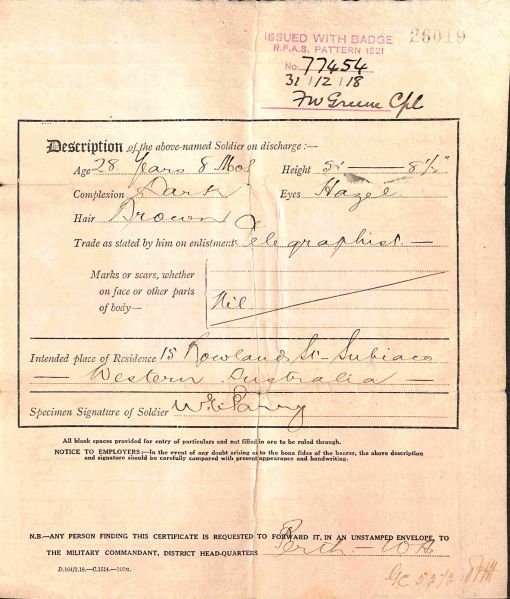 ISSUED WITH BADGE 26019
R.F.A.S. PATTERN 1521
No. 77454
31/12/18
FW Greene Cpl
Description of the above-named Soldier on discharge:—
Age 28 Years 8 Mos Height 5' — 8½"
Complexion Dark Eyes Hazel
Hair Brown
Trade as stated by him on enlistment Telegraphist —
Marks or scars, whether
on face or other parts
of body— Nil
Intended place of Residence 15 Rowland St — Subiaco
— Western Australia —
Specimen Signature of Soldier W. E. Parry
All blank spaces provided for entry of particulars and not filled in are to be ruled through.
NOTICE TO EMPLOYERS:—In the event of any doubt arising as to the bona fides of the bearer, the above description
and signature should be carefully compared with present appearance and handwriting.
N.B.—ANY PERSON FINDING THIS CERTIFICATE IS REQUESTED TO FORWARD IT, IN AN UNSTAMPED ENVELOPE, TO
THE MILITARY COMMANDANT, DISTRICT HEAD-QUARTERS Perth — WA